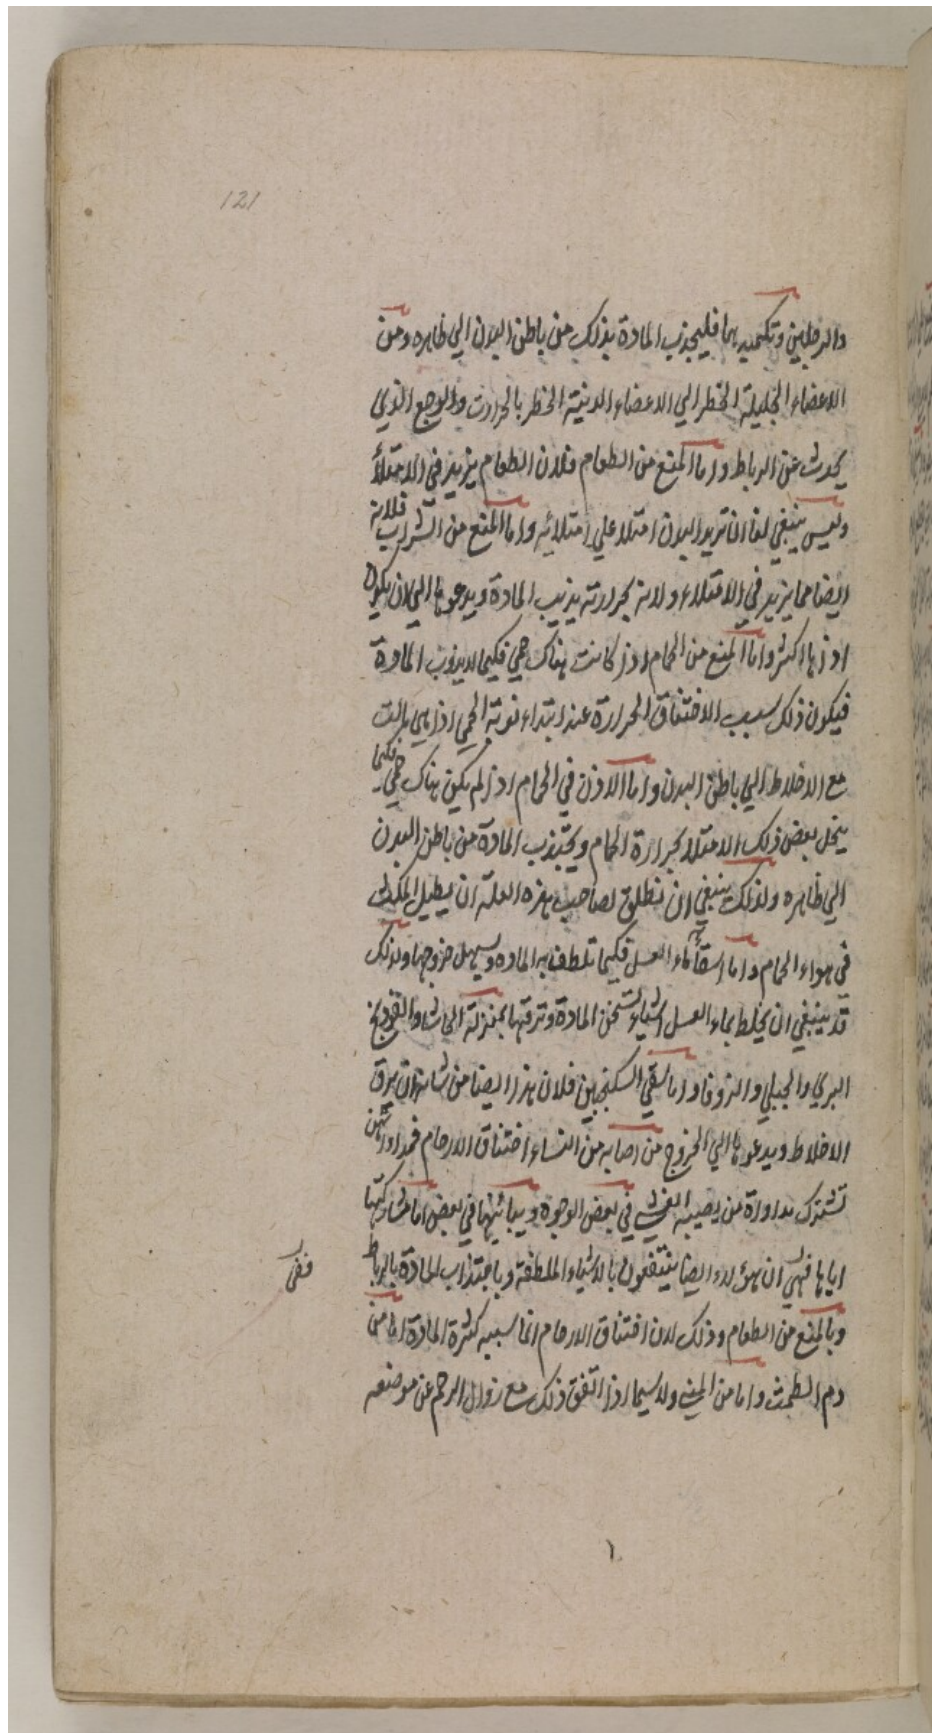 121
والرجلين وتكميد بهما فليجذب المادة بذلك من باطن البدن الي ظاهره ومن
الاعضاء الجليلة الخطر الي الاعضاء الدنية الخطر بالحرارت والوجع الذي
يحدث عن الرباط واما المنع من الطعام فلان الطعام يزيد في الامتلأ
وليس ينبغي لنا ان نزيد البدن امتلا علي امتلائه واما المنع من الشراب فلانه
ايضا مما يزيد في الامتلاء ولانه بحرارته يذيب المادة ويدعوها الي ان يكون
اذاها اكثر واما المنع من الحمام اذا كانت هناك حمي فكيما لا يذوب المادة
فيكون ذلك سبب الاختناق الحرارة عند ابتداء نوبة الحمي اذا هي مالت
مع الاخلاط الي باطن البدن واما الاذن في الحمام اذا لم يكن هناك حمي فكيما
ينحل بعض ذلك الامتلا بحرارة الحمام ويجتذب المادة من باطن البدن
الي ظاهره ولذلك ينبغي ان نطلق لصاحب هذه العلة ان يطيل المكث
في هواء الحمام واما اسقائه ماء العسل فكيما تلطف به المادة ويسهل خروجها ولذلك
قد ينبغي ان يخلط بماء العسل اشياء تسخن المادة وترقها بمنزلة الحاشا والفوذنج
البري والجبلي والزوفا واما سقي السكنجبين فلان هذا ايضا من شانه ان يرق
الاخلاط ويدعوها الي الخروج من اصابه من النساء اختناق الارحام فمداواتهن
تشترك مداواة من يصيبه الغشي في بعض الوجوه ويباينها في بعض اما مشاركتها
اياها فهي ان هؤلاء ايضا ينتفعون بالاشياء الملطفة وباجتذاب المادة بالرباط
وبالمنع من الطعام وذلك لان اختناق الارحام انما سببه كثرة المادة اما من
دم الطمث واما من المني ولا سيما اذا اتفق ذلك مع زوال الرحم عن موضعه